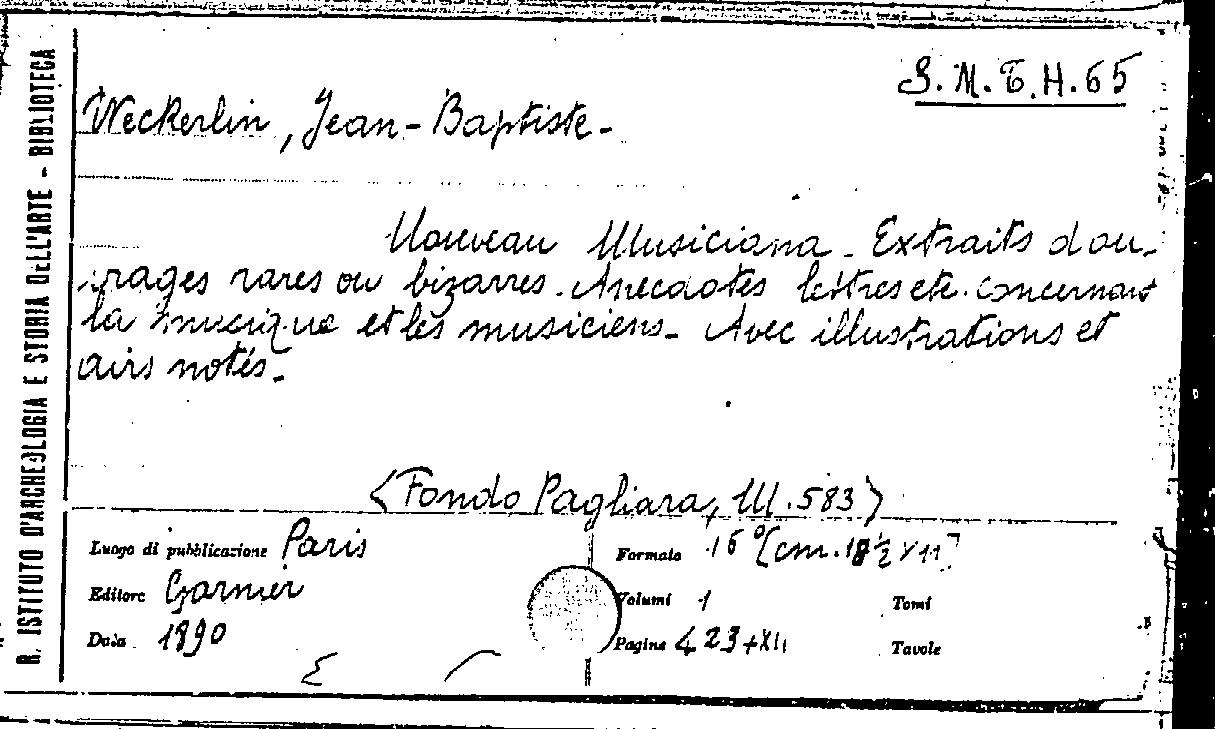 R. ISTITUTO D'ARCHEOLOGIA E STORIA DELL'ARTE - BIBLIOTECA
S. M. T. H. 65
Weckerlin, Jean-Baptiste-
Nouveau Musiciana - Extraits d'ou-
vrages rares ou bizarres. Anecdotes lettres etc. concernant
la musique et les musiciens - Avec illustrations et
airs notés-
(Fondo Pagliara, III. 583)
Luogo di pubblicazione Paris
Editore Garnier
Data 1890
Formato 16° [cm. 18½ x 11]
Volumi 1 Tomi
Pagine 423+XII Tavole